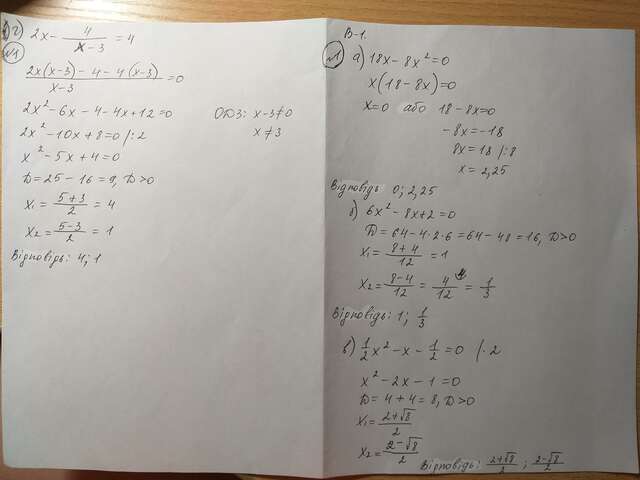 г) 2x - 4/(x-3) = 4
№1
(2x(x-3) - 4 - 4(x-3))/(x-3) = 0
2x² - 6x - 4 - 4x + 12 = 0
ОДЗ: x-3≠0
2x² - 10x + 8 = 0 /:2
x≠3
x² - 5x + 4 = 0
D = 25 - 16 = 9, D>0
x₁ = (5+3)/2 = 4
x₂ = (5-3)/2 = 1
Відповідь: 4; 1
В-1.
№1 а) 18x - 8x² = 0
x(18 - 8x) = 0
x=0 або 18 - 8x = 0
-8x = -18
8x = 18 /:8
x = 2,25
Відповідь 0; 2,25
б) 6x² - 8x + 2 = 0
D = 64 - 4·2·6 = 64 - 48 = 16, D>0
x₁ = (8+4)/12 = 1
x₂ = (8-4)/12 = 4/12 = 1/3
Відповідь: 1; 1/3
в) 1/2 x² - x - 1/2 = 0 /·2
x² - 2x - 1 = 0
D = 4 + 4 = 8, D>0
x₁ = (2+√8)/2
x₂ = (2-√8)/2
Відповідь: (2+√8)/2 ; (2-√8)/2